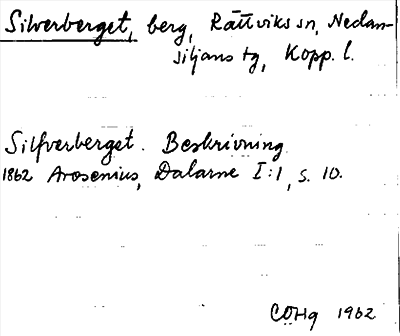 Silverberget, berg, Rättviks sn, Nedan-
siljans tg, Kopp. l.
Silfverberget. Beskrivning
1862 Arosenius, Dalarne I:1, s. 10.
COHg 1962